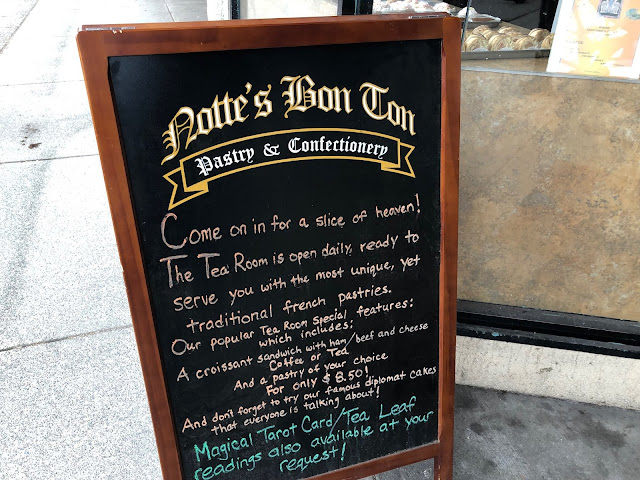 Notte's Bon Ton
Pastry & Confectionery
Come on in for a slice of heaven!
The Tea Room is open daily, ready to
serve you with the most unique, yet
traditional french pastries.
Our popular Tea Room Special features:
which includes:
A croissant sandwich with ham/beef and cheese
Coffee or Tea
And a pastry of your choice
For only $8.50!
And don't forget to try our famous diplomat cakes
that everyone is talking about!
Magical Tarot Card/Tea Leaf
readings also available at your
request!